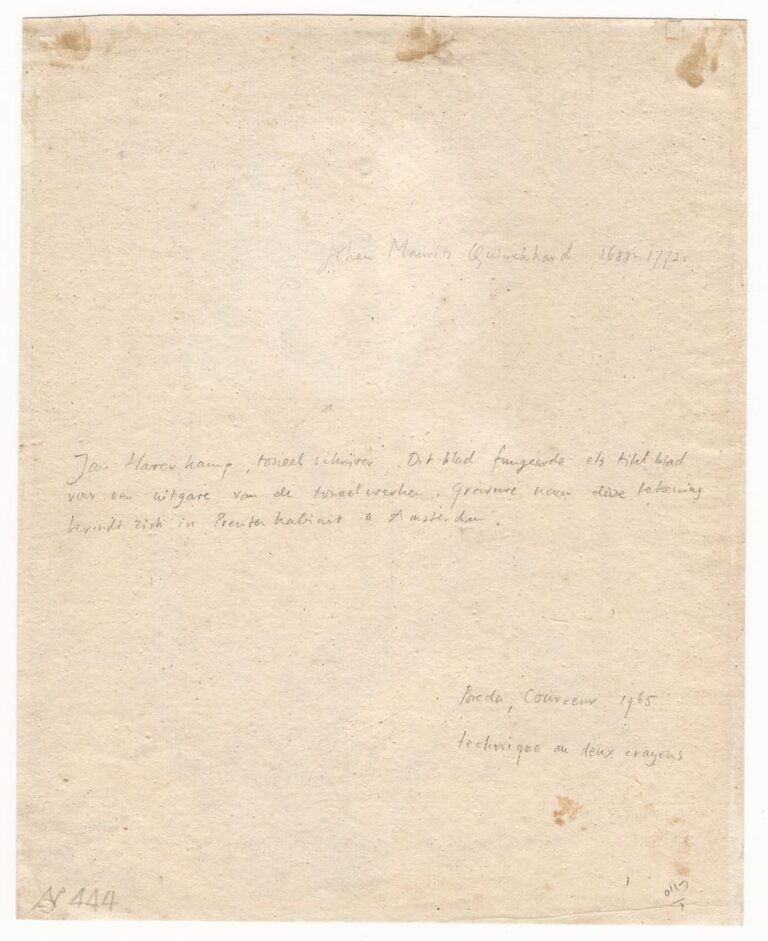 Johan Maurits Quinckhard 1688-1772.
Jan Haverkamp, toneelschrijver. Dit blad fungeerde als titelblad
voor een uitgave van de toneelwerken. Gravure naar deze tekening
bevindt zich in Prentenkabinet te Amsterdam.
Breda, Couvreur 1965
technique au deux crayons
N 444